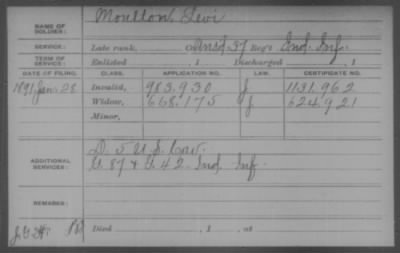 NAME OF SOLDIER: Moulton, Levi
SERVICE: Late rank, Unas'd 37 Reg't Ind. Inf.
TERM OF SERVICE: Enlisted , 1 Discharged , 1
DATE OF FILING. CLASS. APPLICATION NO. LAW. CERTIFICATE NO.
1891 Jan. 28 Invalid, 983.930 J 1131.962
Widow, 668.175 J 624.921
Minor,
D. 5 U.S. Cav.
ADDITIONAL SERVICES: G. 87 & G. 42 Ind. Inf.
REMARKS:
Died , 1 , at